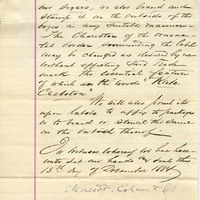 our Cigars, we also brand and
stamp it on the outside of the
boxes in any suitable manner.
The Character of the ornamen-
tal border surrounding the label
may be changed as desired by us
without affecting said Trade
mark the essential feature
of which are the words "Kate
Castleton"
We will also print it
upon labels to affix to packages
or to brand or stencil the same
on the outside thereof.
In Witness whereof we have here-
unto set our hands and seals this
13th day of December 188